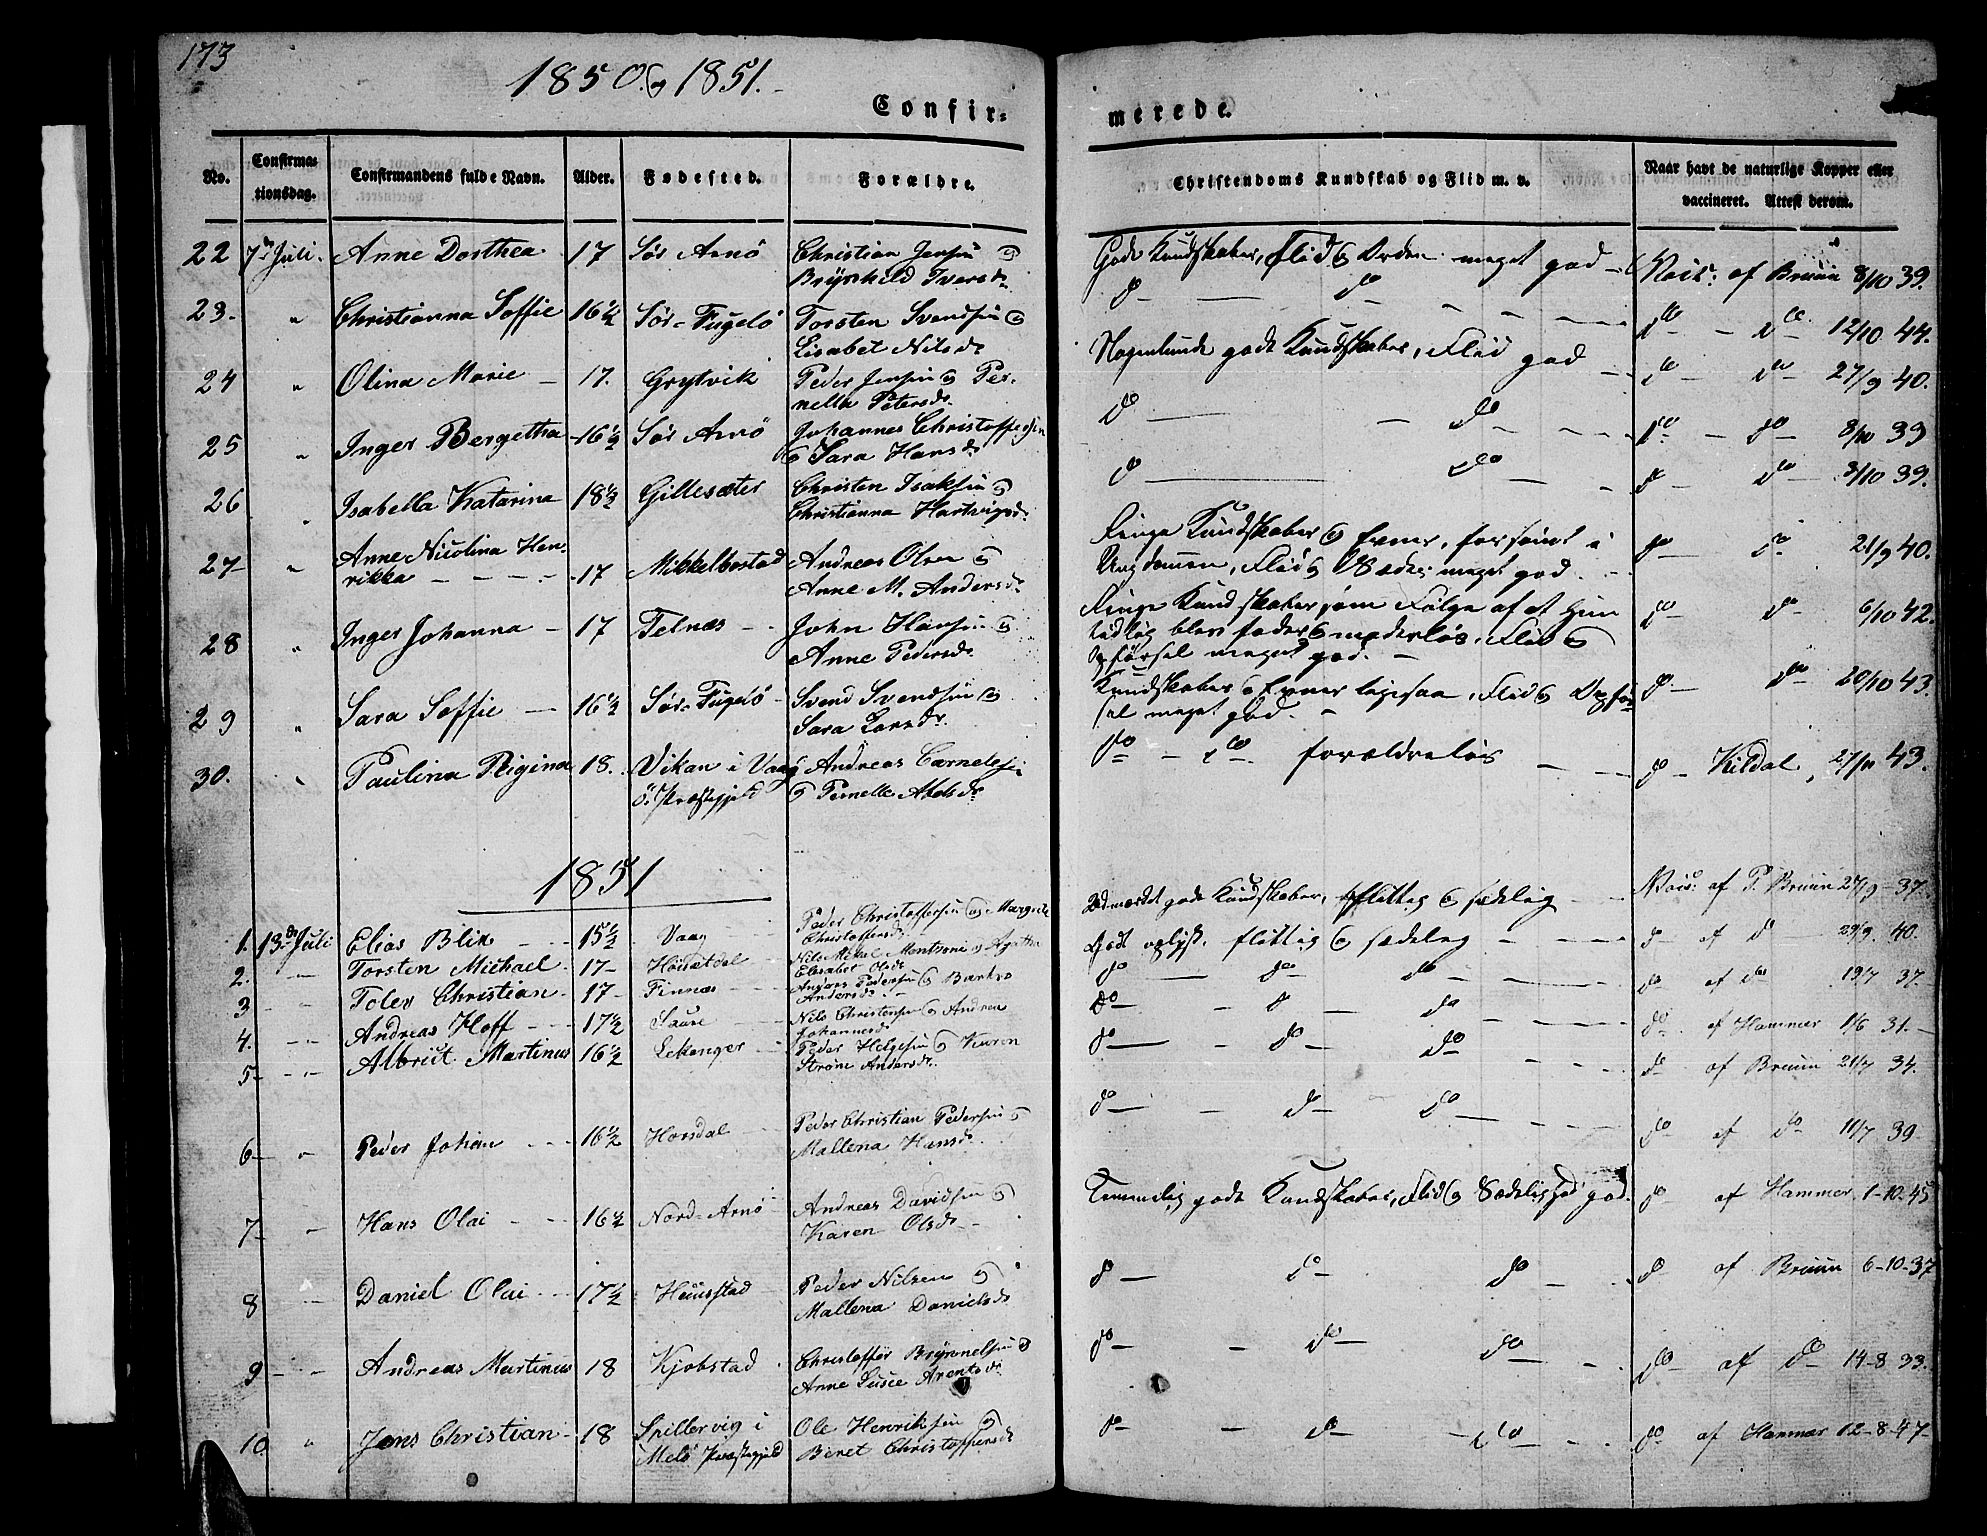 173
1850 og 1851.
Confir=
merede.
No.
Confirma=
tionsdag.
Confirmandens fulde Navn.
Alder.
Fødested.
Forældre.
Christendoms Kundskab og Flid m. v.
Naar havt de naturlige Kopper eller
vaccineret. Attest derom.
22 7de Juli. Anne Dorthea 17 Sör Arnö Christian Jensen og
Brynhild Iversdr.
Gode Kundskaber, Flid og Orden meget god Vacc. af Bruun 8/10 39.
23. " Christianna Soffie 16½ Sör-Fugelö Torsten Svendsen og
Lisabet Nilsdr.
do — do — 12/10 44.
24 " Olina Marie — 17. Grytvik Peder Jensen og Per-
nella Petersdr.
Nogenlunde gode Kundskaber, Flid god do — do — 27/9 40.
25 " Inger Bergetha 16½ Sör Arnö Johannes Christoffersen
og Sara Hansdr.
do — do — do — do — 8/10 39
26 " Isabella Katarina 18½ Gillesæter Christen Isaksen og
Christianna Hartvigsdr.
do — do — do — do — 3/10 39.
27 " Anne Nicolina Hen-
rikka — 17 Mikkelbostad Andreas Olsen og
Anne M. Andersdr.
Ringe Kundskaber og Evner, forsömt i
Ungdommen, Flid og Sæder meget god. do — do 21/9 40.
28 " Inger Johanna — 17 Felnæs — John Hansen og
Anne Pedersdr.
Ringe Kundskaber som Fölge af at hun
tidlig blev fader og moderlös, Flid og
Opförsel meget god. — do — do — 6/10 42.
29 " Sara Soffie — 16½ Sör-Fugelö Svend Svendsen og
Sara Larsdr.
Kundskaber og Evner ligesaa, Flid og Opför-
sel meget god. — do — do — 20/10 43.
30. " Paulina Rigina 18. Vikan i Vaag- Andreas Cornelsen
ö Præstegjeld og Pernelle Abelsdr.
do — do — forældrelös do — Kildal, 27/11 43.
1851
1. 13de Juli Elias Blix — 15½ Vaag Peder Christoffersen og Margrete
Christoffersdr.
Udmærket gode Kundskaber, flittig og sædelig Vacc. af P. Bruun 27/9 — 37.
2. — Torsten Michael 17 — Housetdal Nils Mikal Montsen og Agatha
Elisabet Olsdr.
Godt oplyst, flittig og sædelig — do af do 29/9. 40.
3 — Tolev Christian 17 — Finnæs — Anders Pedersen og
Andersdr.
do — do — do — do af do 19/7 37.
4. — Andreas Hoff — 17½ Saure Nils Christensen og Andrea
Johannesdr.
do — do — do do af Hammer 1/6 31. —
5 — Albrigt Martinus 16½ Lekanger Peder Helgesen og Karen
Ström Andersdr.
do — do — do — do — af Bruun 21/7 34.
6 — " Peder Johan — 16½ Horsdal Peder Christian Pedersen og
Mallena Hansdr.
do — do — do — do af do 11/7 39
7 — Hans Olai — 16½ Nord-Arnö Andreas Davidsen og
Karen Olsdr. —
Temmelig gode Kundskaber, Flid og Sædelighed god. do — af Hammer 1-10-45
8 — Daniel Olai — 17½ Heimstad — Peder Nilsen og
Mallena Danielsdr.
do — do — do — do — af Bruun 6-10-37
9 — Andreas Martinus 18 Kjobstad Christoffer Brynnelsen og
Anne Susce Arentsdr.
do — do — do — do — af do — 14-8-33.
10 " Jens Christian 18 Spillervig i Ole Henriksen og
Melö Præstegjeld Beret Christophersdr.
do — do — do — do af Hammer 12-8-47